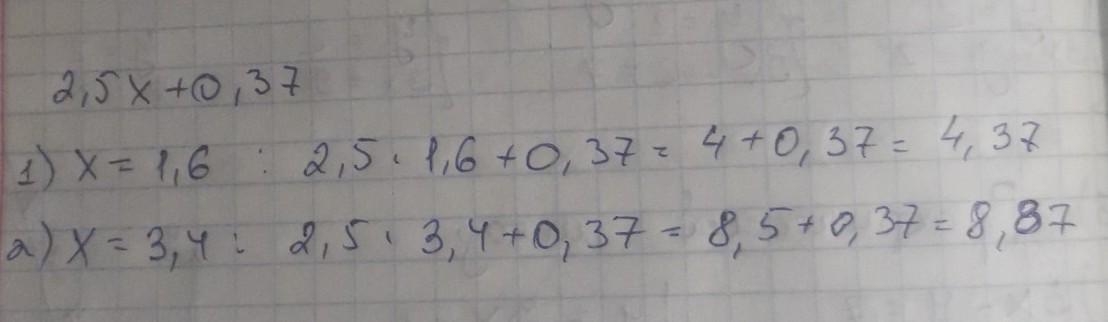 2,5x+0,37
1) x=1,6 : 2,5·1,6+0,37= 4+0,37= 4,37
2) x=3,4: 2,5·3,4+0,37=8,5+0,37=8,87